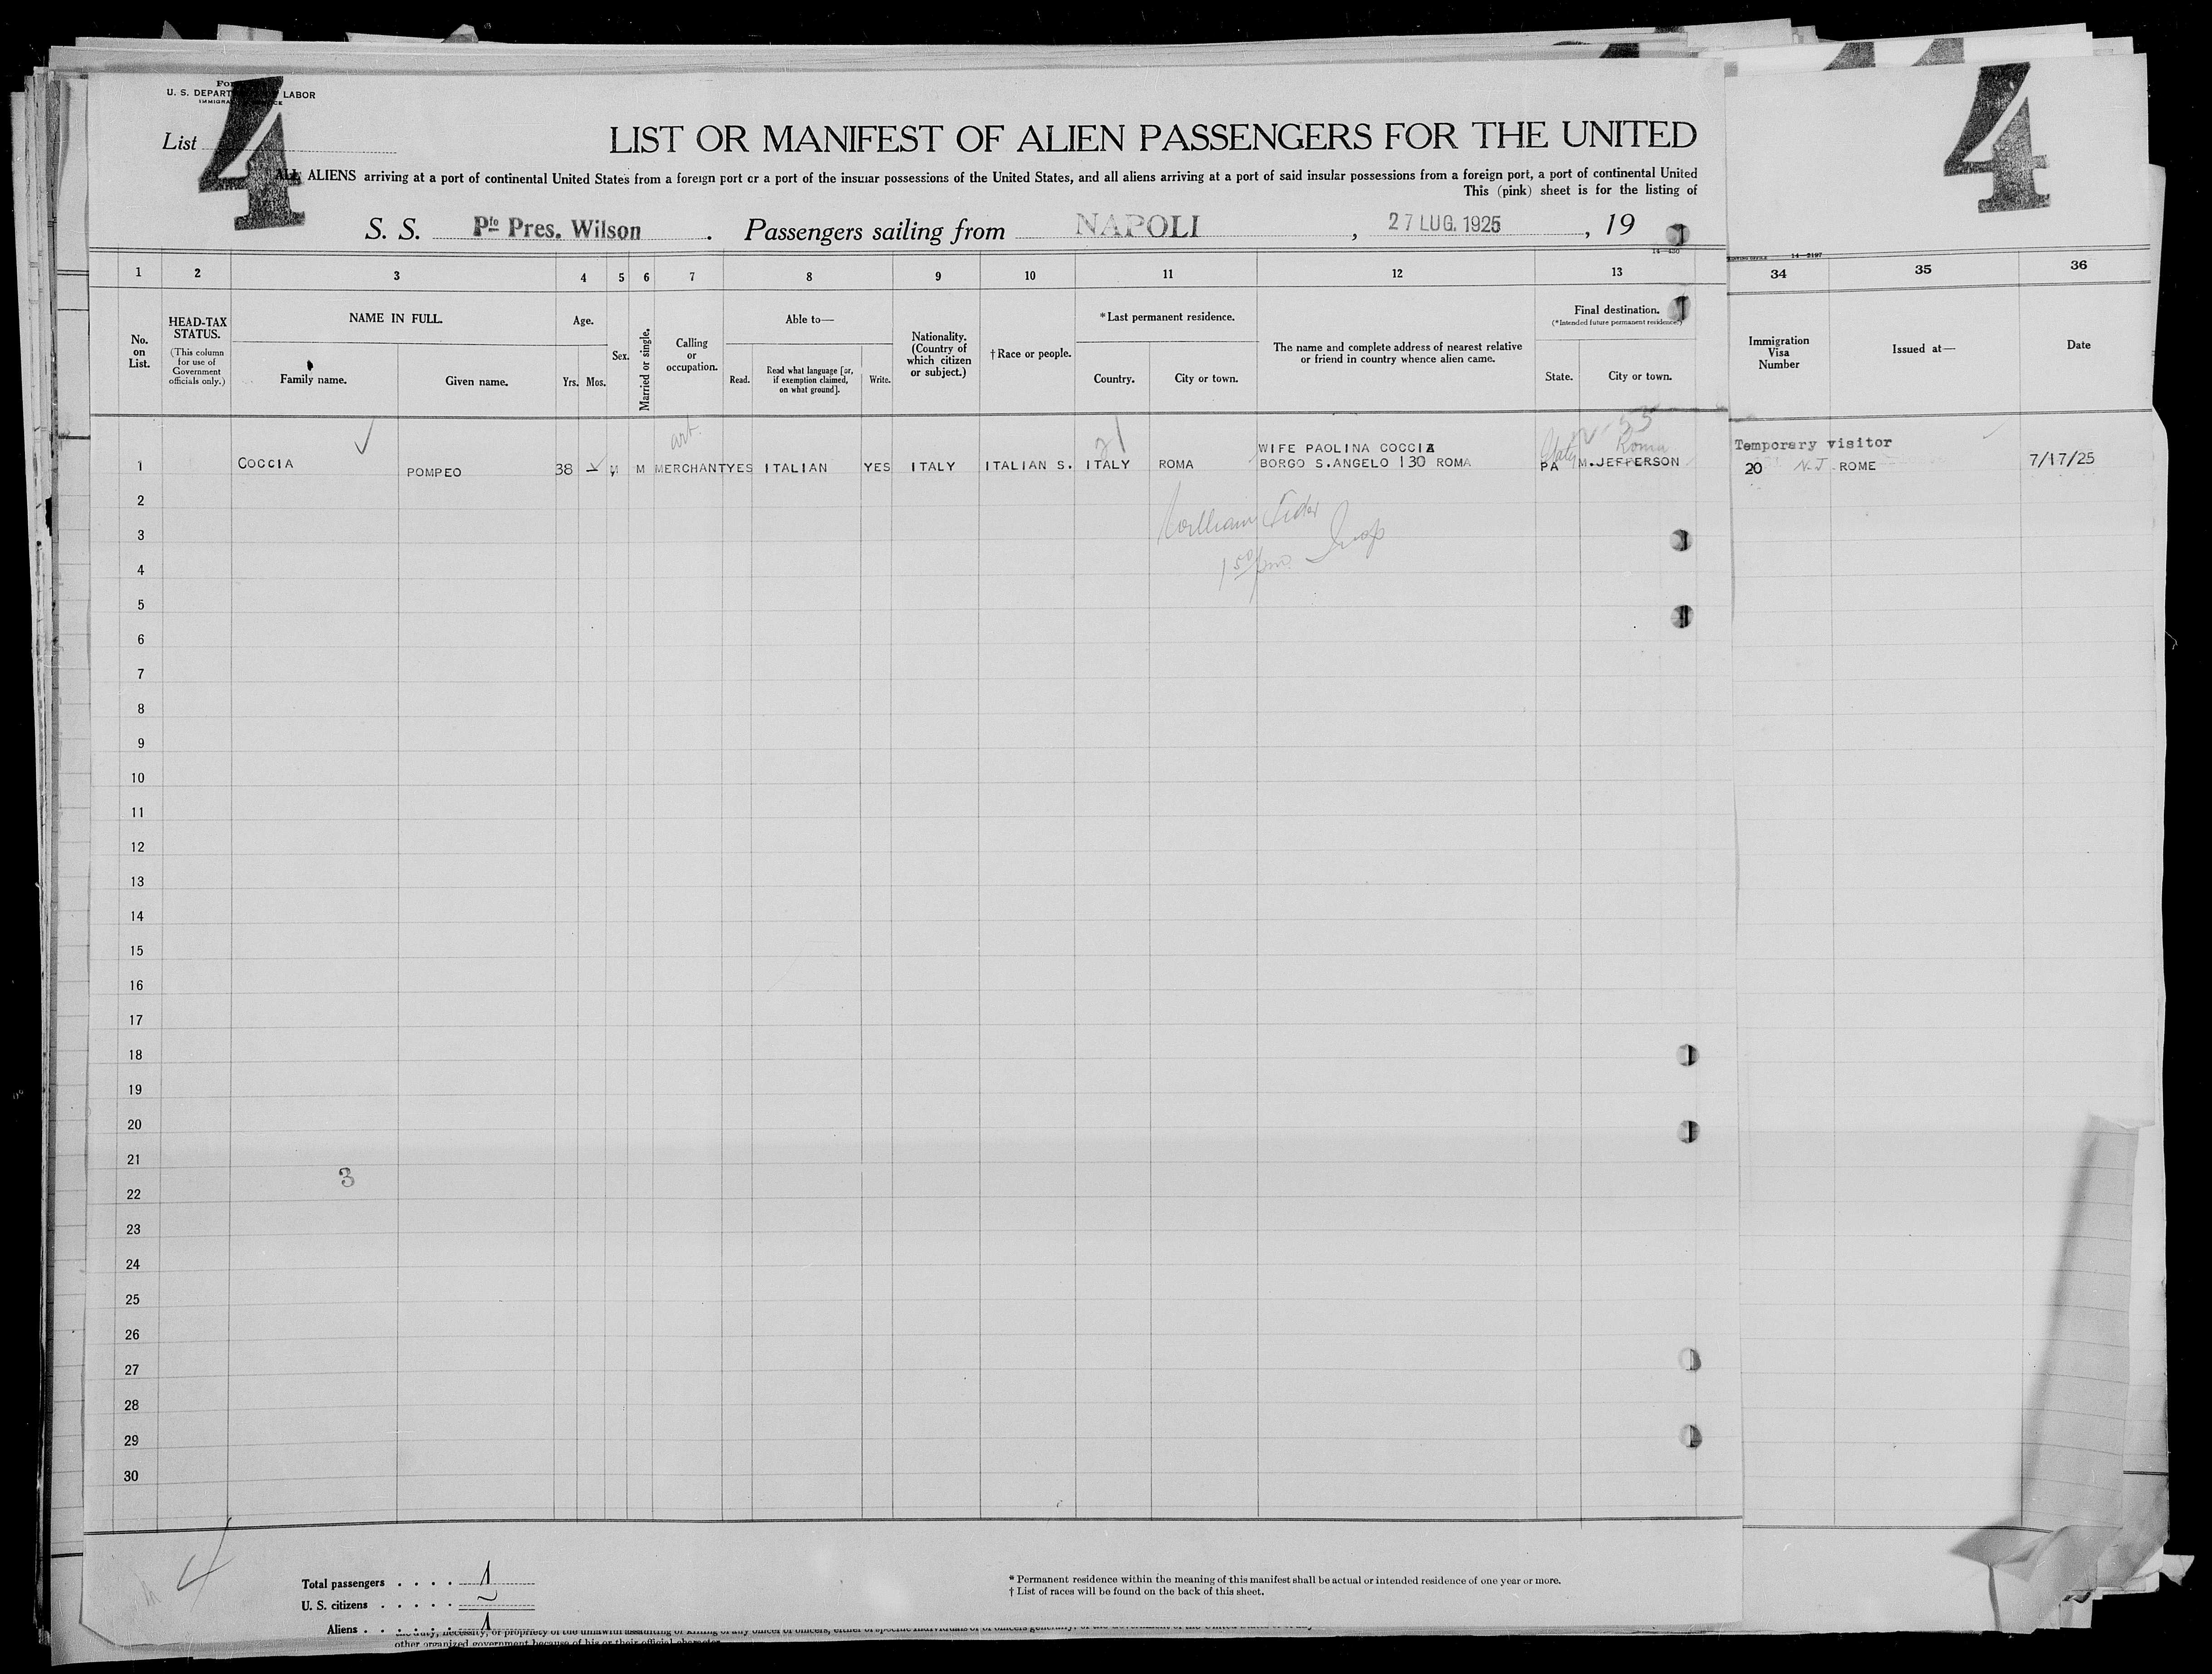 U. S. DEPART LABOR
List
4
4
LIST OR MANIFEST OF ALIEN PASSENGERS FOR THE UNITED
ALL ALIENS arriving at a port of continental United States from a foreign port or a port of the insular possessions of the United States, and all aliens arriving at a port of said insular possessions from a foreign port, a port of continental United
This (pink) sheet is for the listing of
S. S. Pfo Pres. Wilson . Passengers sailing from NAPOLI , 27 LUG. 1925 , 19
14—2197
1 2 3 4 5 6 7 8 9 10 11 12 13 34 35 36
No. on List.
HEAD-TAX STATUS.
(This column for use of Government officials only.)
NAME IN FULL.
Family name. Given name.
Age.
Yrs. Mos.
Sex.
Married or single.
Calling or occupation.
Able to—
Read. Read what language [or, if exemption claimed, on what ground]. Write.
Nationality. (Country of which citizen or subject.)
† Race or people.
* Last permanent residence.
Country. City or town.
The name and complete address of nearest relative or friend in country whence alien came.
Final destination.
(*Intended future permanent residence.)
State. City or town.
Immigration Visa Number
Issued at—
Date
art. 21 Italy Roma
WIFE PAOLINA COCCIA Temporary visitor
1 COCCIA POMPEO 38 — M M MERCHANT YES ITALIAN YES ITALY ITALIAN S. ITALY ROMA BORGO S.ANGELO 130 ROMA PA M.JEFFERSON 20 N-J ROME 7/17/25
2
3
4
5
6
7
8
9
10
11
12
13
14
15
16
17
18
19
20
21
3
22
23
24
25
26
27
28
29
30
4
Total passengers . . . . 1
U. S. citizens . . . . . ~
Aliens . . . . . . 1
* Permanent residence within the meaning of this manifest shall be actual or intended residence of one year or more.
† List of races will be found on the back of this sheet.
other organized government because of his or their official character